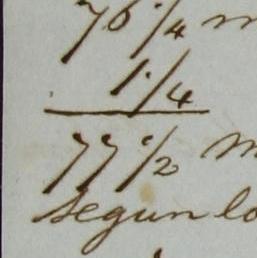 76 1/4 m
1 1/4
77 1/2 m
Segun lo